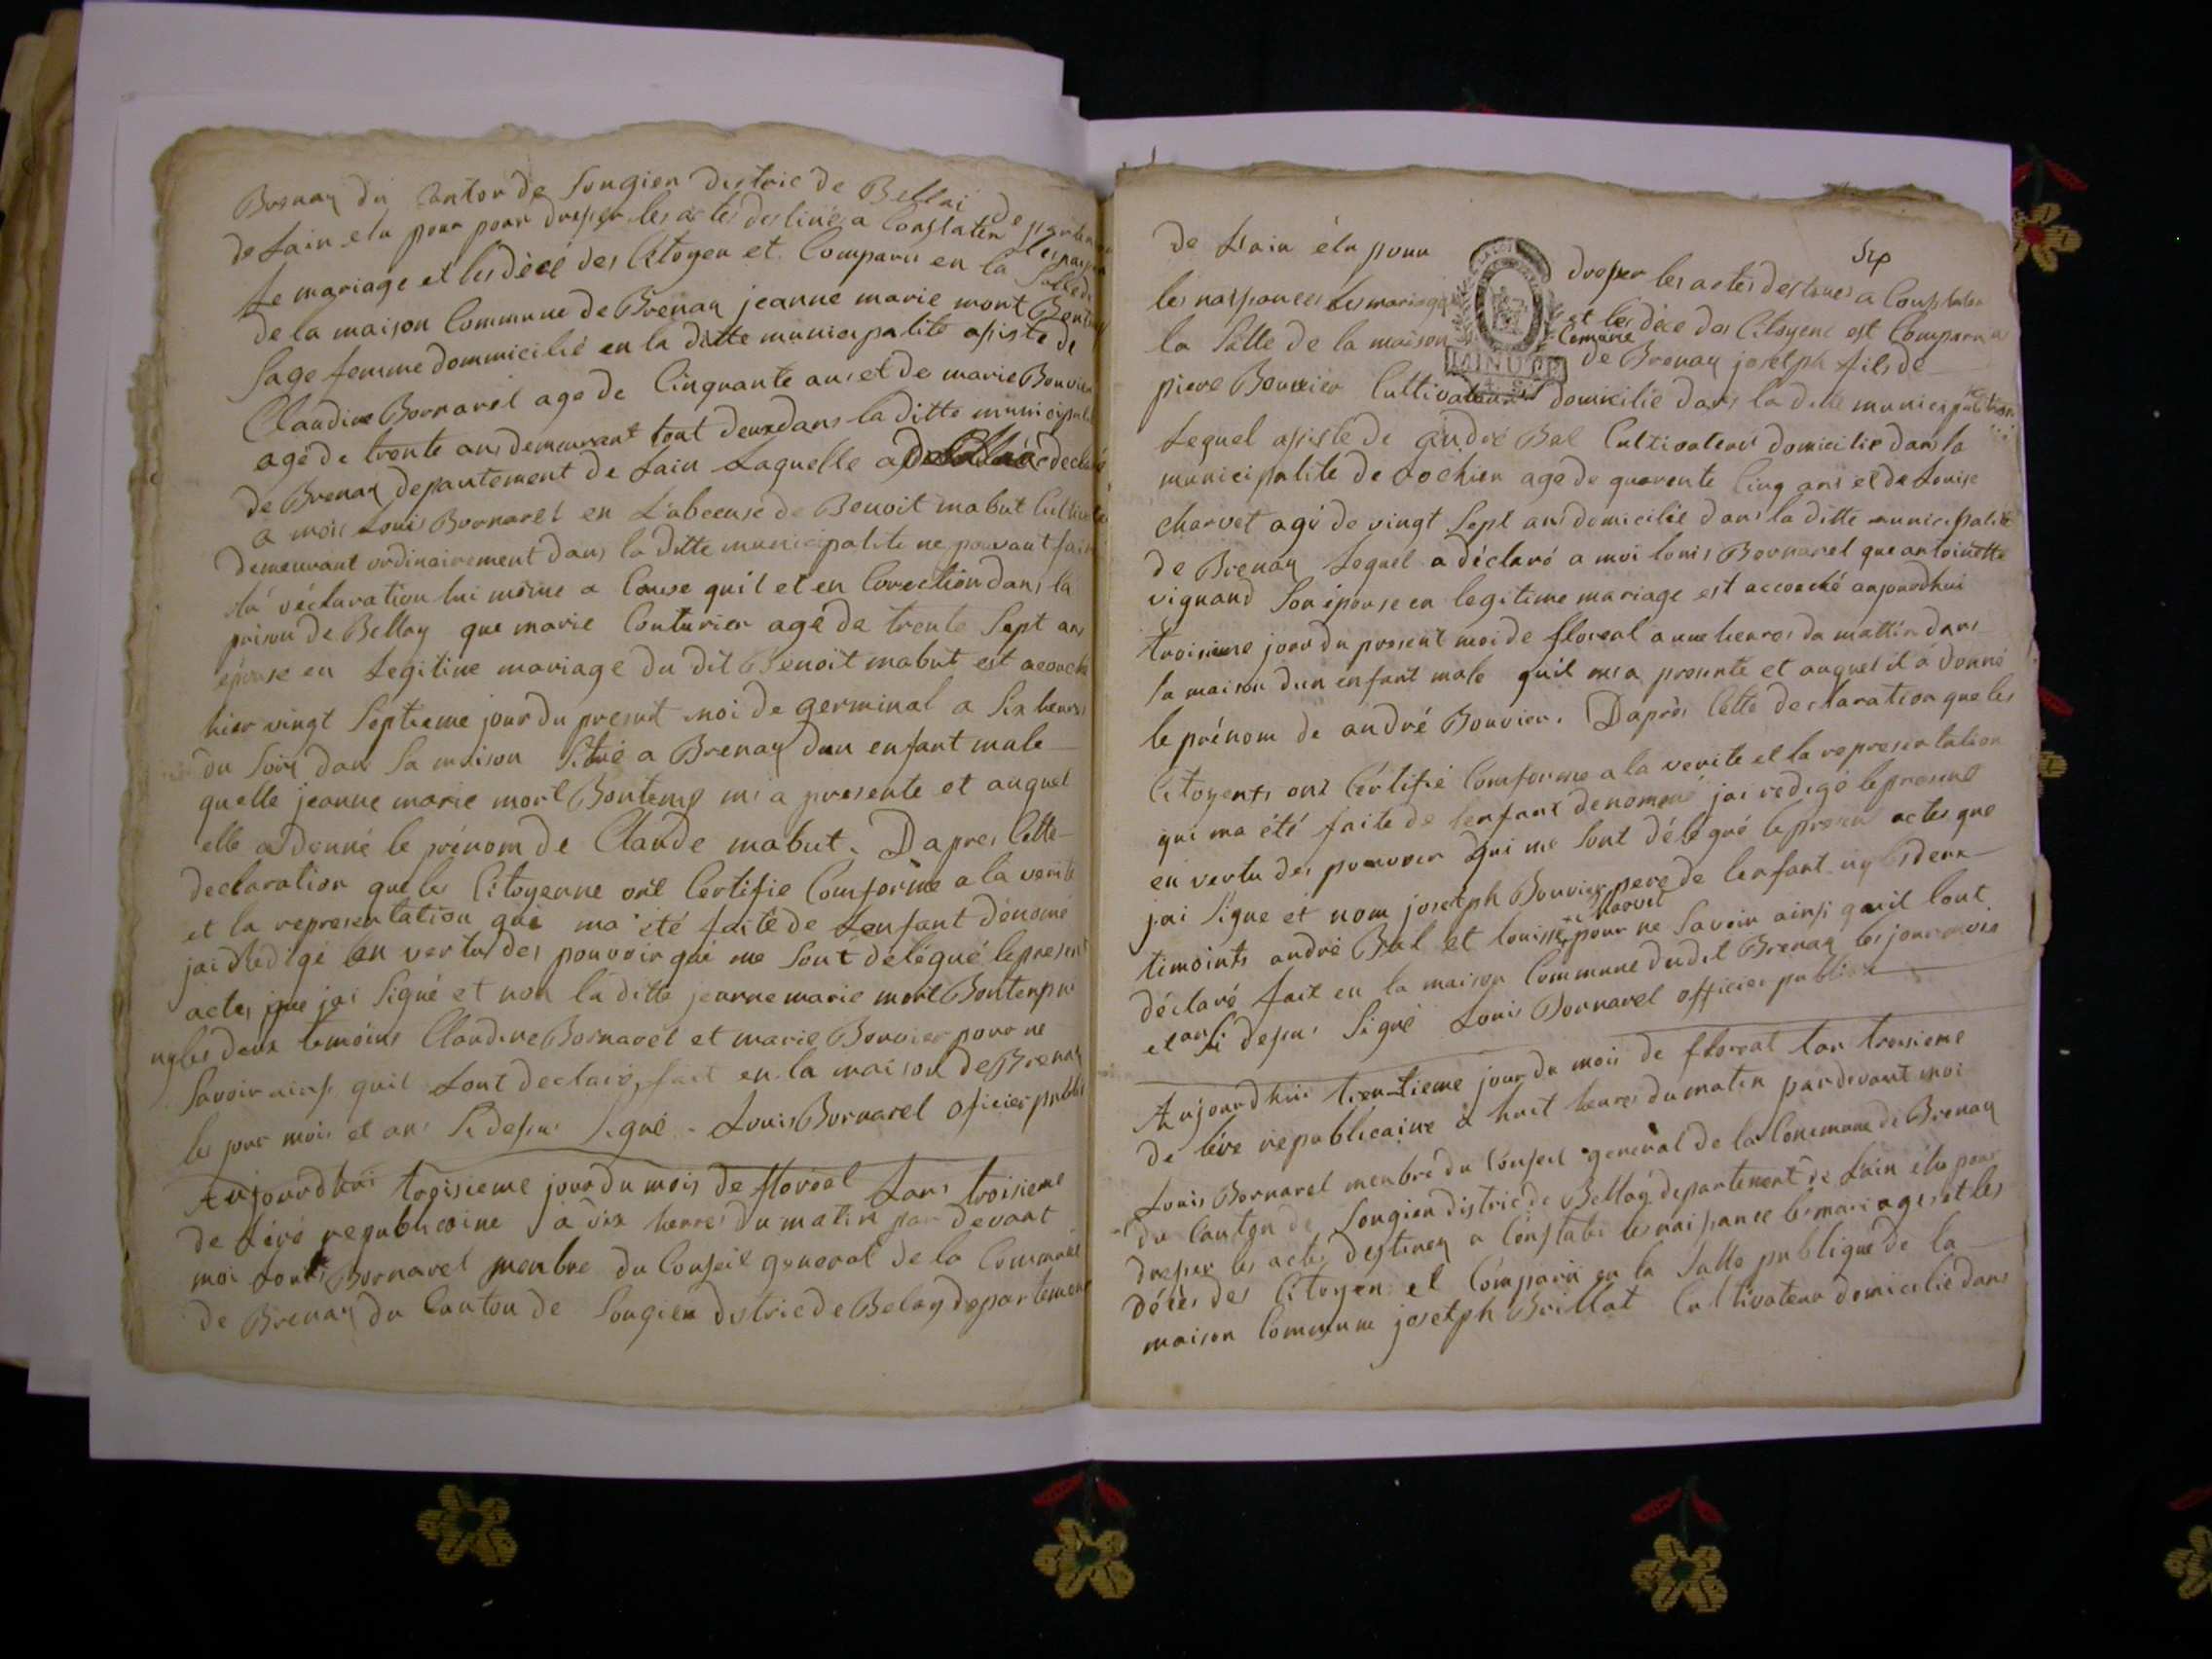 Brenay du Canton de Songieu distric de Bellai de
de Lain elu pour pour dresser les actes destinés a Constater
Le mariage et les décé des Citoyen et Comparu en la Salle
de la maison Commune de Brenay jeanne marie mort
Sage femme dommicilié en la ditte municipalité asiste de
Claudine Bornarel age de Cinquante ans et de marie Bouvier
agé de trente ans demeurant tout deux dans la ditte
de Brenay departement de Lain Laquelle a
a moi Louis Bornarel en L'abcense de Benoit mabut
demeurant ordinairement dans la ditte municipalite ne pouvant
la déclaration lui même a Couse quil et en Corection dans la
prison de Bellay que marie Couturier agé de trente Sept ans
épouse en Legitime mariage du dit Benoit mabut est acouché
hier vingt Septieme jour du present moi de germinal a Six heurs
du Soir dans Sa maison Situé a Brenay dun enfant male
quelle jeanne marie mort Bontemp mi a presenté et auquel
elle a donné le prénom de Claude mabut. Dapres Cette
declaration que les Citoyenne ont Certifie Comforme a la verité
et la representation qui ma été faite de Lenfant dénomé
jai Redigé en vertu des pouvoir qui me Sont délégué le present
actes que jai Signé et non la ditte jeanne marie mort Bontemp ni
ny les deux temoins Claudine Bornarel et marie Bouvier pour ne
Savoir ainsi quil Lont declaré, fait en la maison de Brenay
les jour mois et ans Sidessus Signé - Louis Bornarel oficier public
Aujourdhui troisieme jour du mois de floréal Lans troisieme
de Léré republicaine a dix heures du matin par devant
moi Louis Bornarel menbre du Conseil general de la Commune
de Brenay du Canton de Songieu distric de Belay departement
Six
de Lain élu pour dresser les actes destinés a Constater
les naissances les mariages et les déce des Citoyens est Comparu
la Salle de la maison Comune de Brenay joseph fils de
MINUTE
piere Bouvier Cultivateur domicilié dans la ditte municipalité
Lequel asiste de andré Bal Cultivateur domicilié dans la
municipalite de Lochieu agé de quarente Cinq ans et de Louise
charvet agé de vingt Sept ans domicilié dans la ditte municipalité
de Brenay Lequel a déclaré a moi louis Bornarel que antoinette
vignand Son épouse en legitime mariage est accouché aujourdhui
troisieme jour du present moi de floreal a une heures du mattin dans
sa maison dun enfant male quil mia presenté et auquel il a donné
le prénom de andré Bouvier. Daprès Cette declaration que les
Citoyents ont Cértifié Comforme a la verite et la representation
qui ma été faite de lenfant denommé jai redigé le present
en vertu des pouvoir qui me Sont délégué le present actes que
jai Signe et nom josetph Bouvier pere de lenfant ny les deux
timoints andré Bal et louise charvet pour ne Savoir ainsi quil Lont
déclaré fait en la maison Commune dudit Brenay les jour mois
et an Si dessus Signé Louis Bornarel officier public
Aujourdhui trentieme jour du mois de floreal Lan troisieme
de lére republicaine a huit heures du matin pardevant moi
Louis Bornarel menbre du Conseil general de la Commune de Brenay
du Canton de Songieu distric de Bellay departement de Lain élu pour
dresser les actes destinez a Constater les naissance les mariages et les
décès des Citoyen et Comparu en la Salle publique de la
maison Commune josetph Brillat Cultivateur domicilié dans